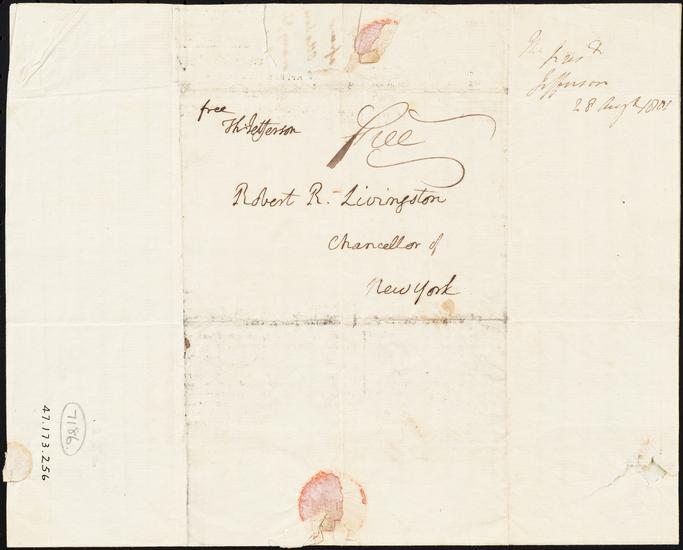 free
Th: Jefferson
free
Robert R. Livingston
Chancellor of
New York
The
Presdt
Jefferson
28 Augt 1801
7186.
47.173.256